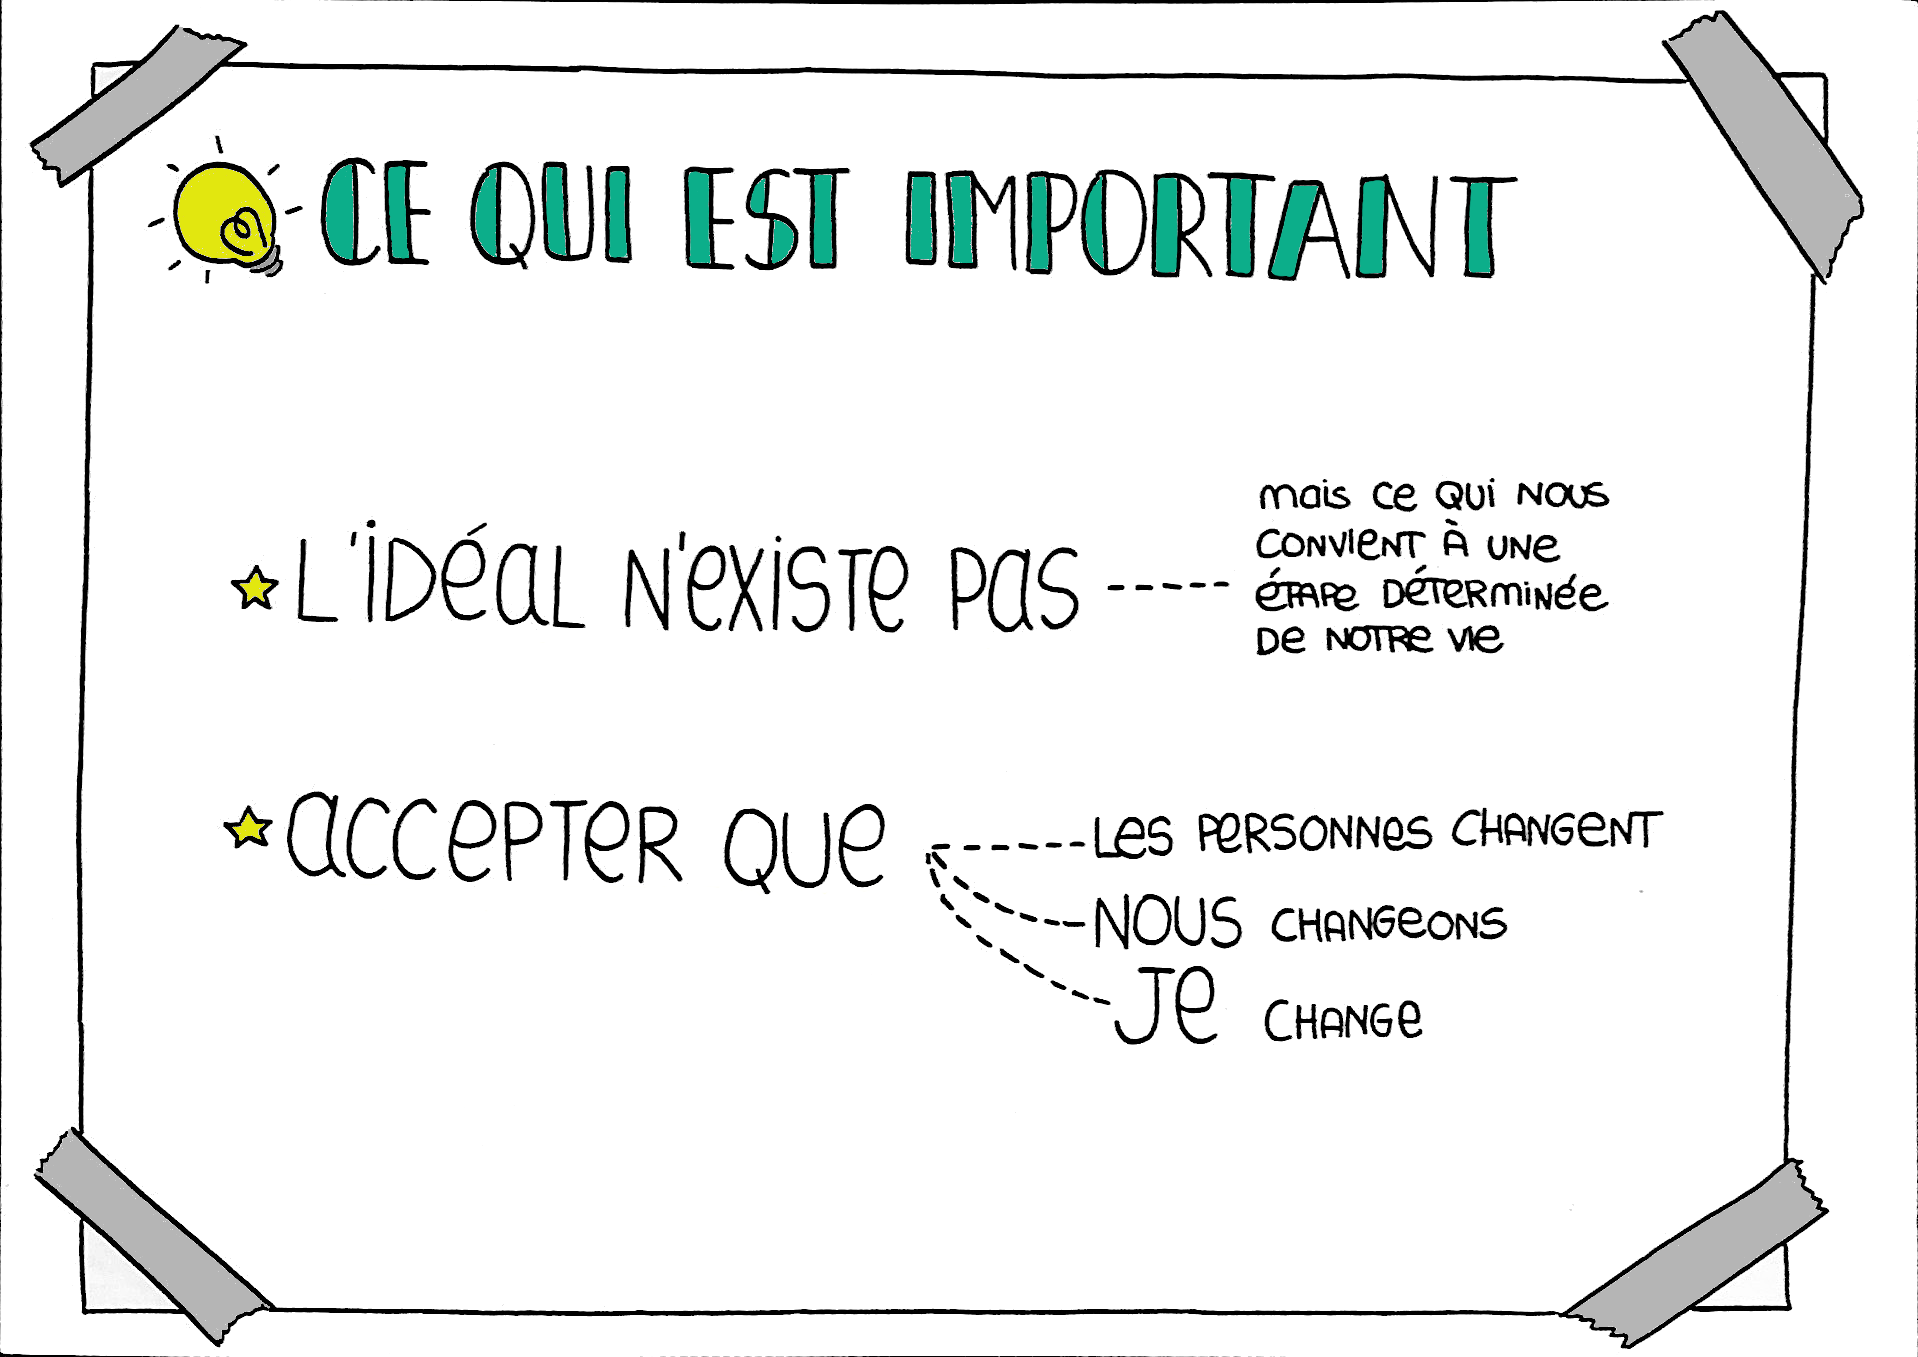 CE QUI EST IMPORTANT
L'IDÉAL N'EXISTE PAS
mais ce qui nous
convient à une
étape déterminée
de notre vie
ACCEPTER QUE
LES PERSONNES CHANGENT
NOUS CHANGEONS
JE CHANGE